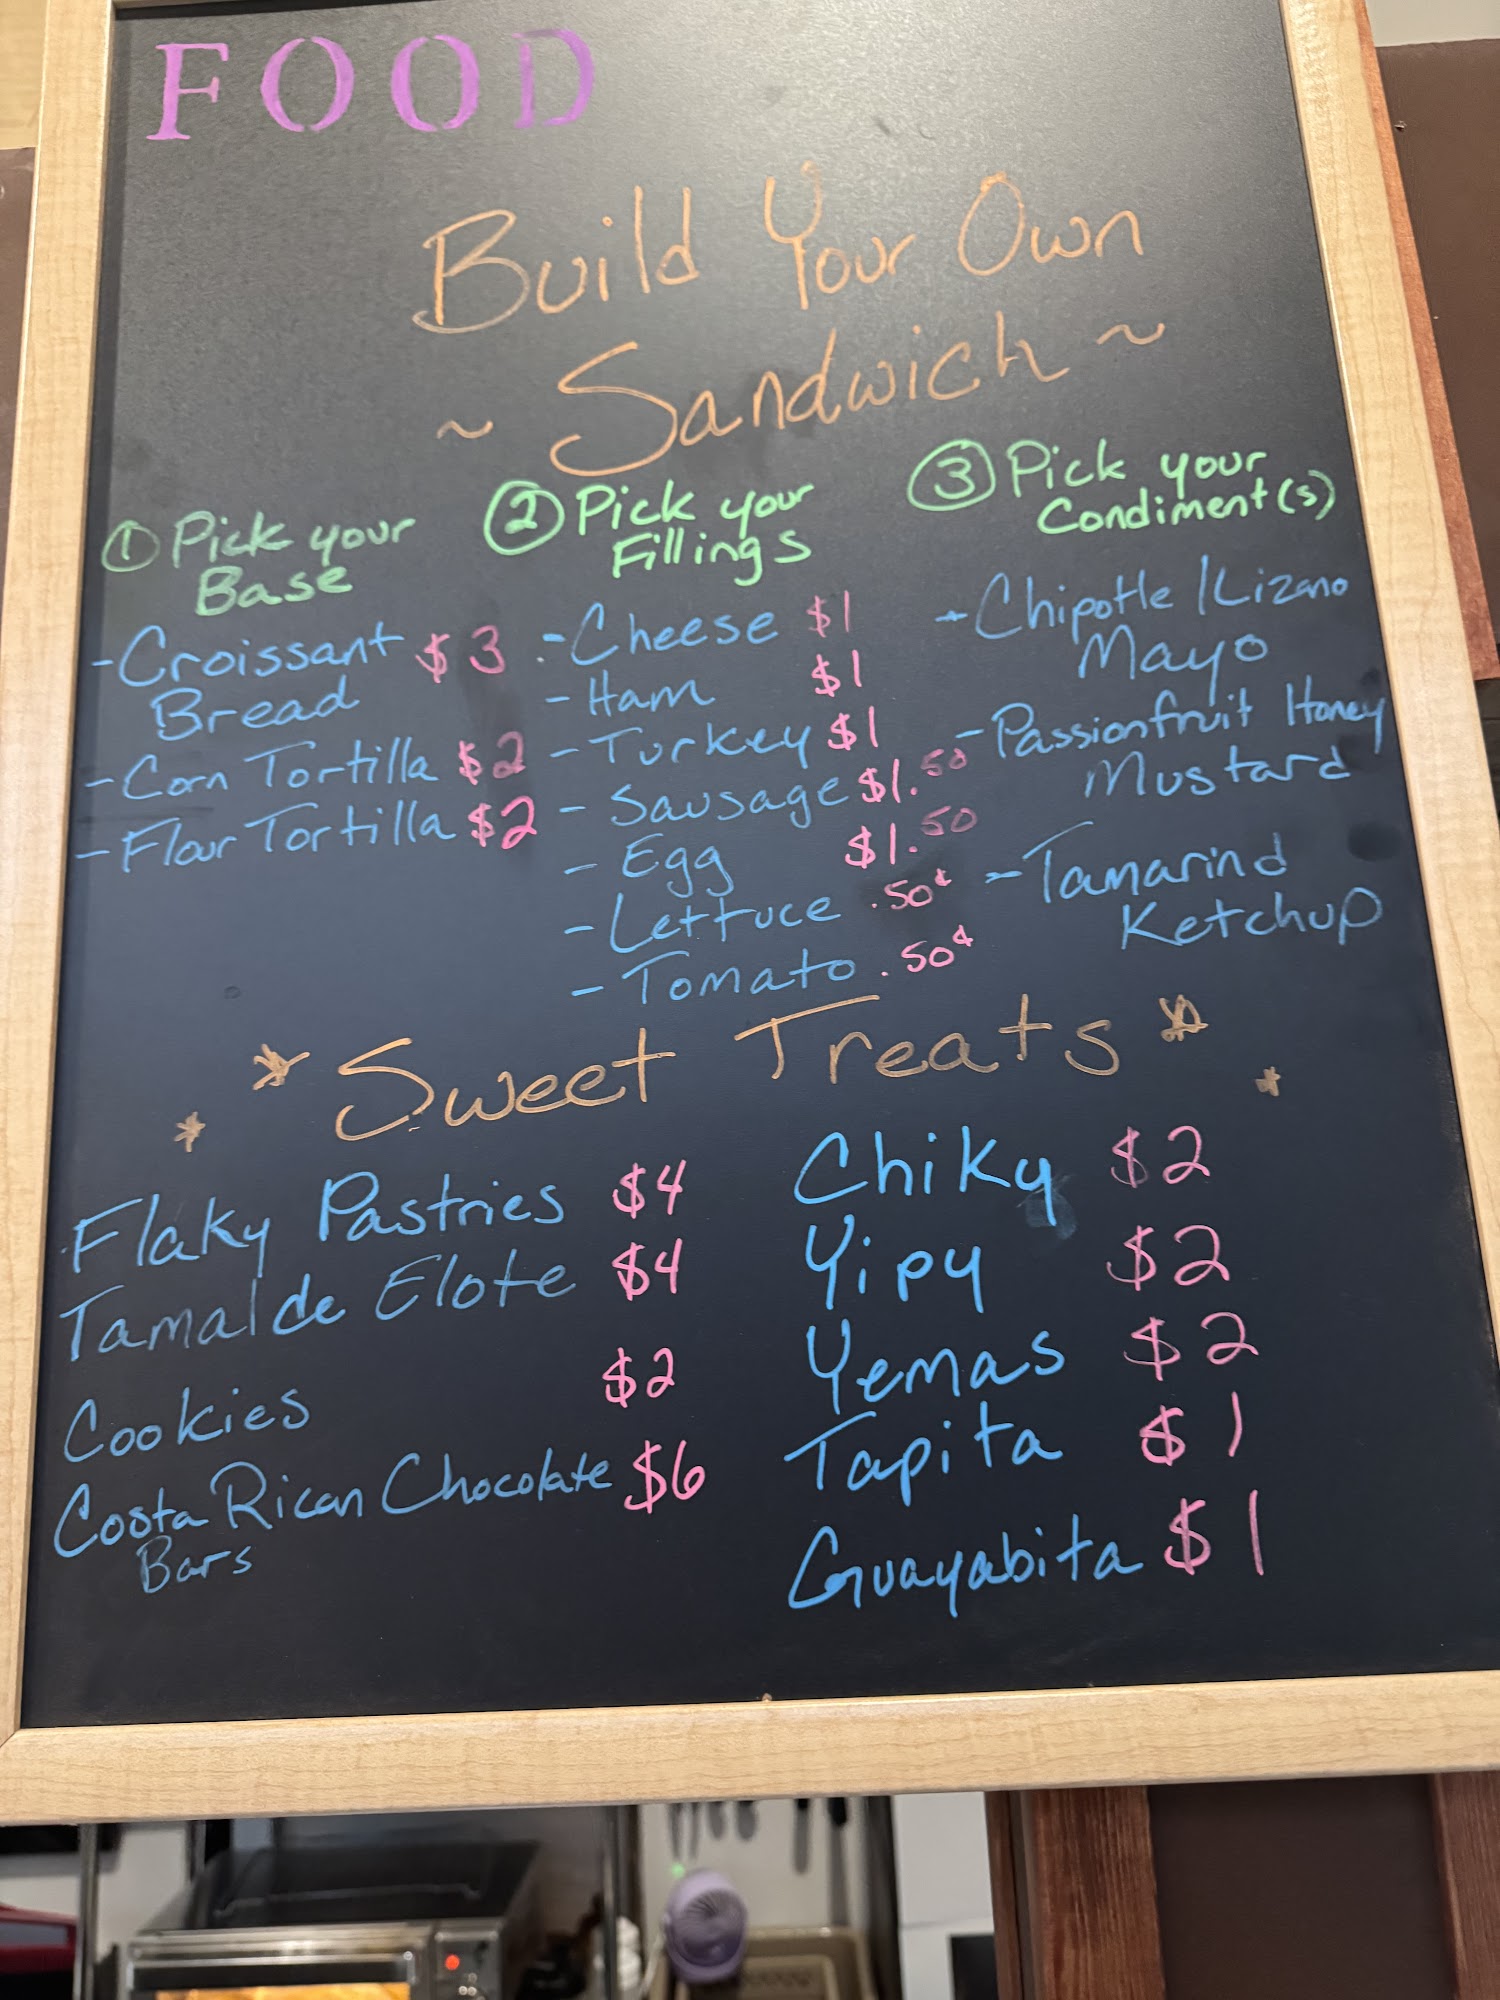 FOOD
Build Your Own
~ Sandwich ~
① Pick your
Base
- Croissant $3
Bread
- Corn Tortilla $2
- Flour Tortilla $2
② Pick your
Fillings
- Cheese $1
- Ham $1
- Turkey $1
- Sausage $1.50
- Egg $1.50
- Lettuce .50¢
- Tomato .50¢
③ Pick your
Condiment(s)
- Chipotle/Lizano
Mayo
- Passionfruit Honey
Mustard
- Tamarind
Ketchup
* * Sweet Treats * *
Flaky Pastries $4
Tamal de Elote $4
Cookies $2
Costa Rican Chocolate $6
Bars
Chiky $2
Yipy $2
Yemas $2
Tapita $1
Guayabita $1